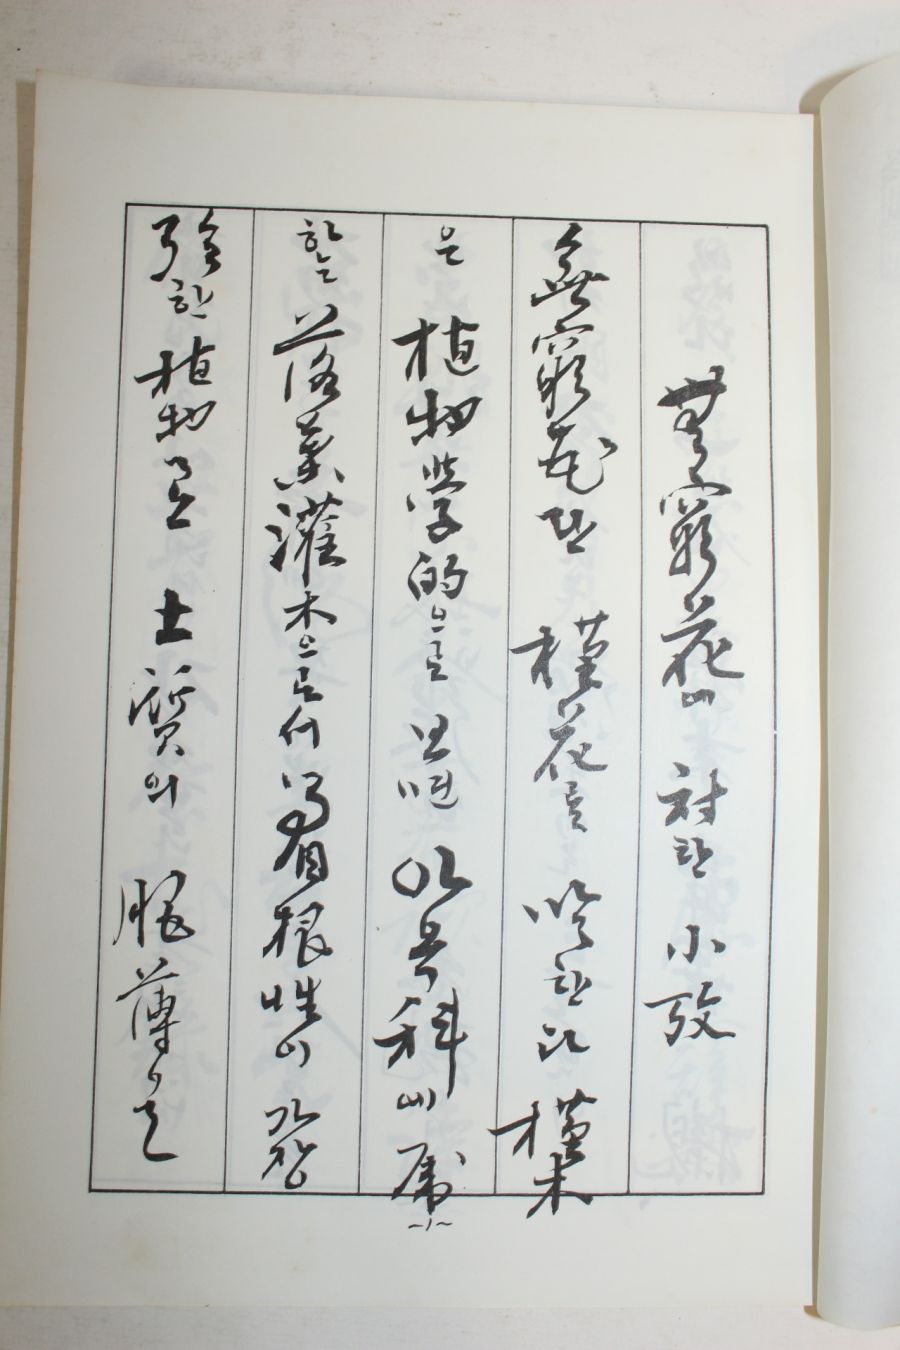 無窮花에 対한 小攷
無窮花란 槿花를 말한다 槿木
은 植物学的으로 보면 아욱科에 属
하는 落葉灌木으로서 着根性이 가장
强한 植物로 土質의 肥薄을
~1~